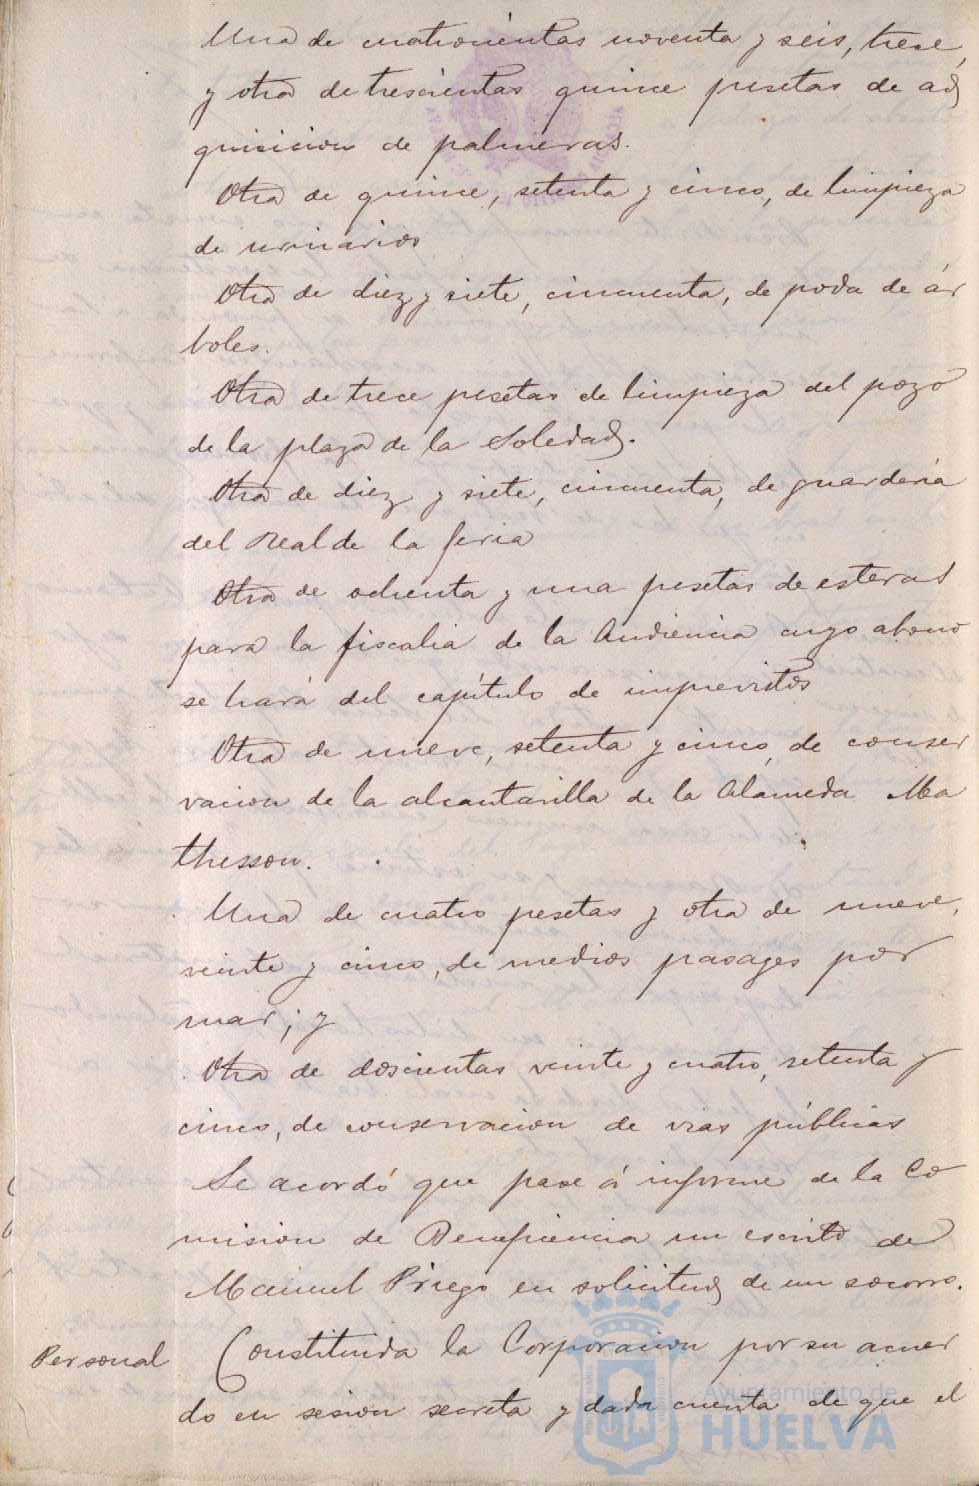 Una de cuatrocientas noventa y seis, trece,
y otra de trescientas quince pesetas de ad
quisicion de palmeras.
Otra de quince, setenta y cinco, de limpieza
de urinarios
Otra de diez y siete, cincuenta, de poda de ár
boles.
Otra de trece pesetas de limpieza del pozo
de la plaza de la Soledad.
Otra de diez y siete, cincuenta, de guardería
del Real de la feria
Otra de ochenta y una pesetas de esteras
para la fiscalia de la Audiencia cuyo abono
se hará del capítulo de imprevistos
Otra de nueve, setenta y cinco, de conser
vacion de la alcantarilla de la Alameda Ma
thesson.
Una de cuatro pesetas y otra de nueve,
veinte y cinco, de medios pasages por
mar; y
Otra de doscientas veinte y cuatro, setenta y
cinco, de conservacion de vias públicas
Se acordó que pase á informe de la Co
mision de Beneficiencia un escrito de
Manuel Priego en solicitud de un socorro.
Personal Constituida la Corporacion por su acuer
do en sesion secreta y dada cuenta de que el
Ayuntamiento de
HUELVA